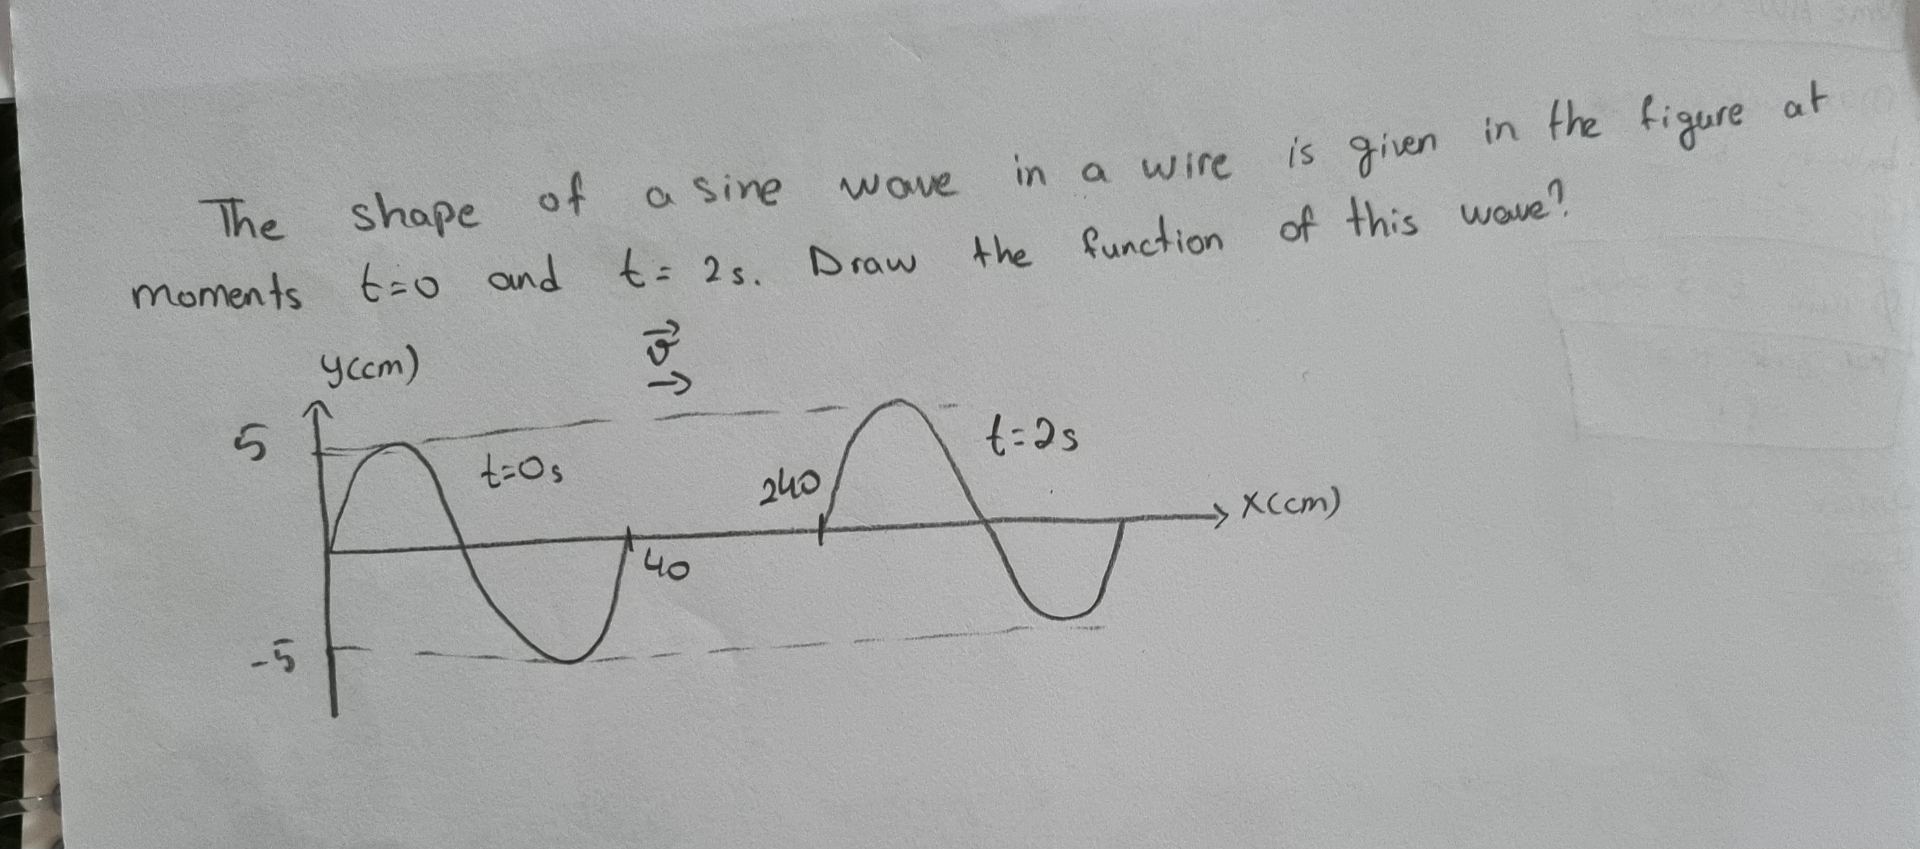 The shape of a sine wave in a wire is given in the figure at
moments t=0 and t= 2s. Draw the function of this wave?
y(cm)
v
5
t=0s
240
t=2s
X(cm)
40
-5